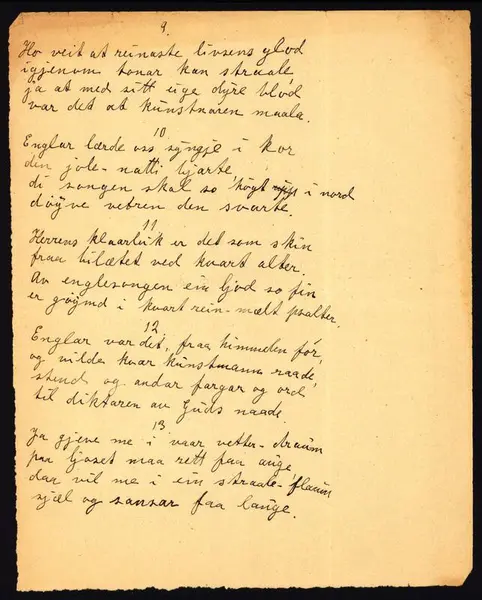 9.
Ho veit at reinaste livsens glod
igjenom tonar kan straale,
ja at med sitt eige dyre blod
var det at kunstnaren maala.
10
Englar lærde oss syngje i kor
den jole-natti bjarte,
di songen skal so høgt i nord
døyve vetren den svarte.
11
Herrens klaarleik er det som skin
fraa bilætet ved kvart alter.
Av englesongen ein ljod so fin
er gøymd i kvart rein-mælt psalter.
12.
Englar var det, fraa himmelen fór,
og vilde kvar kunstmann raade,
stend og andar fargar og ord
til diktaren av Guds naade.
13
Ja gjeve me i vaar vetter-draum
paa ljoset maa rett faa auge
daa vil me i ein straale-flaum
sjæl og sansar faa lauge.